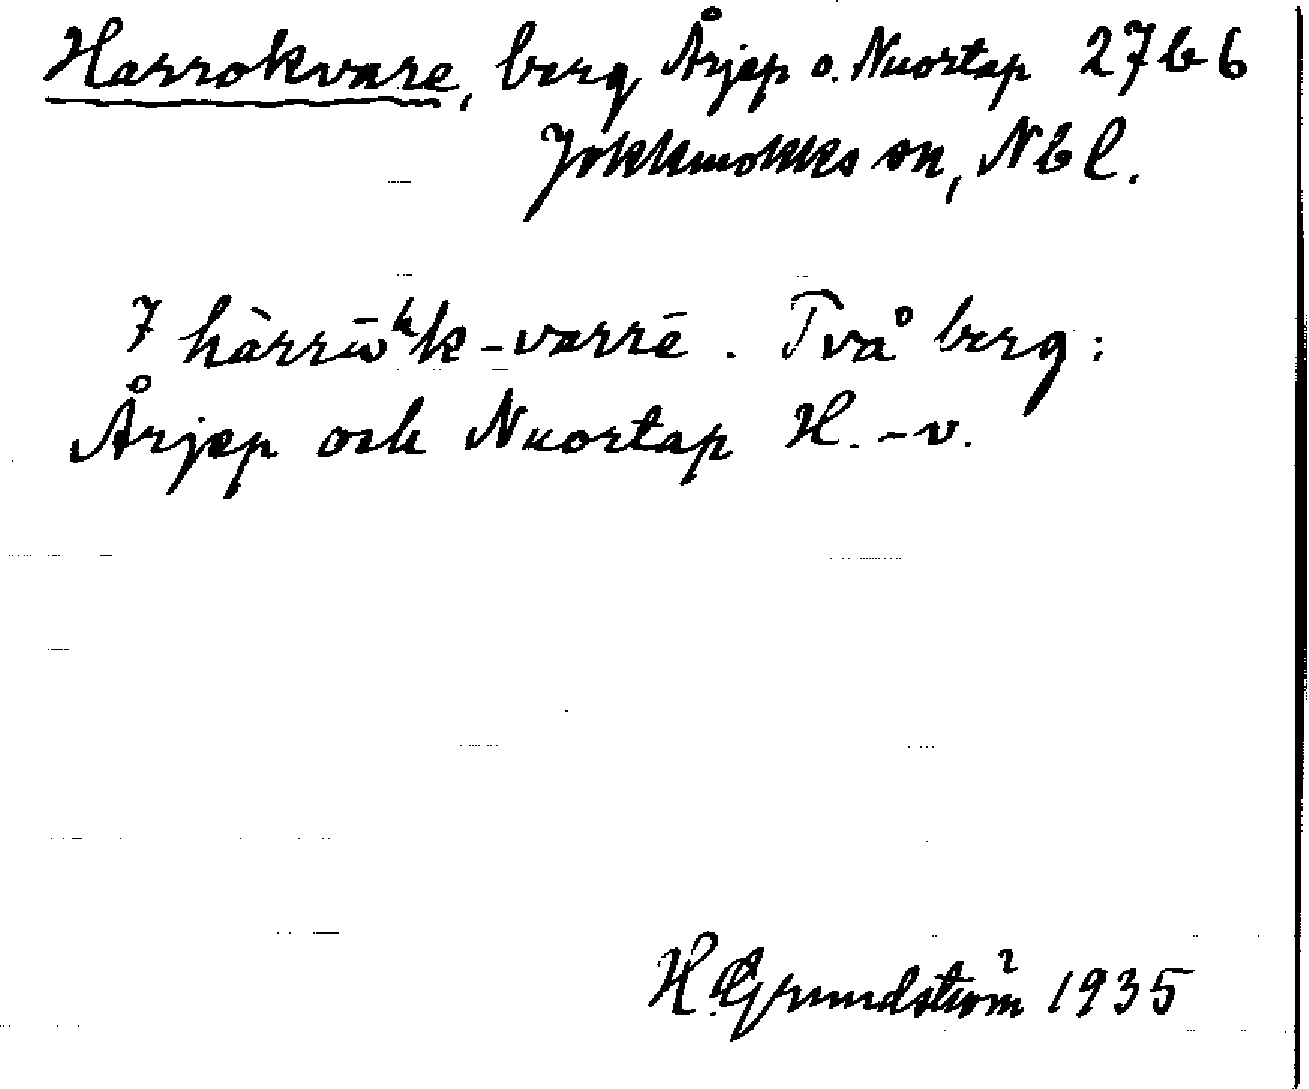 Harrokvare, berg, Årjep o. Nuortap 27b6
Jokkmokks sn, Nbl.
7 hàrrω̄ʰk-varrē. Två berg:
Årjep och Nuortap H.-v.
H. Grundström 1935